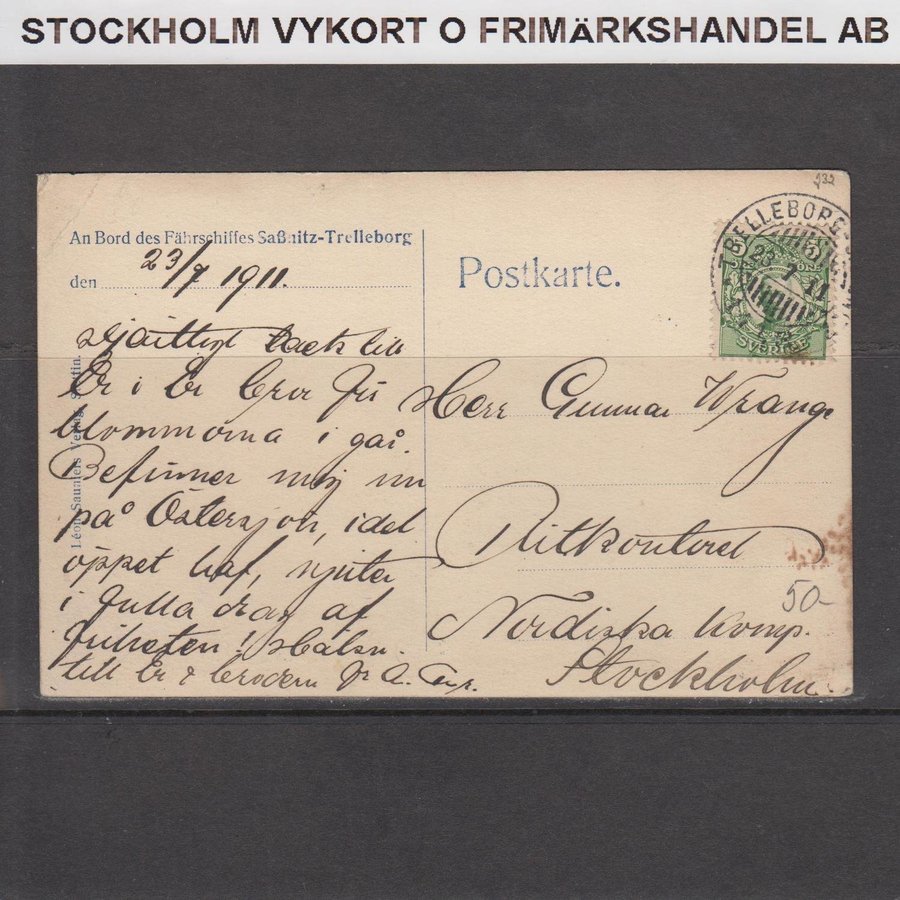 STOCKHOLM VYKORT O FRIMÄRKSHANDEL AB
232
An Bord des Fährschiffes Saßnitz-Trelleborg
den 23/7 1911.
Postkarte.
TRELLEBORG
23 7 11
SVERIGE
Léon Sauniers Verlag, Stettin.
Hjärtligt tack till
Er i Er bror för
blommorna i går.
Befinner mig nu
på Östersjön, idel
öppet haf, njuter
i fulla drag af
friheten! Hälsn.
till Er & brodern fr
Herr Gunnar Wrange
Ritkontoret
Nordiska Komp.
Stockholm.
50-